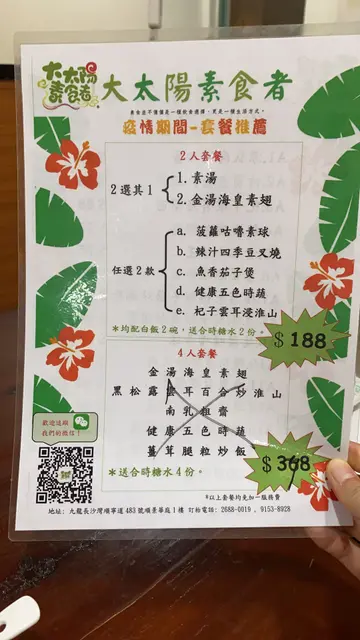 大太陽
素食者
大太陽素食者
素食並不僅僅是一種飲食選擇，更是一種生活方式。
疫情期間-套餐推薦
2人套餐
2選其1
1. 素湯
2. 金湯海皇素翅
任選2款
a. 菠蘿咕嚕素球
b. 辣汁四季豆叉燒
c. 魚香茄子煲
d. 健康五色時蔬
e. 杞子雲耳浸淮山
*均配白飯2碗，送合時糖水2份。
$188
4人套餐
金湯海皇素翅
黑松露雲耳百合炒淮山
南乳粗齋
健康五色時蔬
薑茸腿粒炒飯
*送合時糖水4份。
$368
歡迎追蹤
我們的微信！
*以上套餐均免加一服務費
地址: 九龍長沙灣順寧道483號順景華庭1樓 訂枱電話: 2688-0019 , 9153-8928